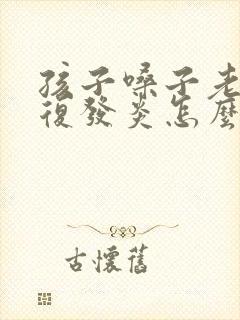 孩子嗓子老
復發炎怎麼
古懷舊